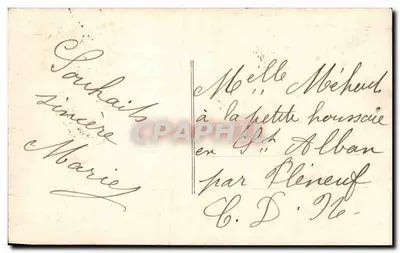 Souhaits
sincère
Marie
Melle Méheut
à la petite houssaie
en St Alban
par Pléneuf
C. D. N.
CPAPHIL